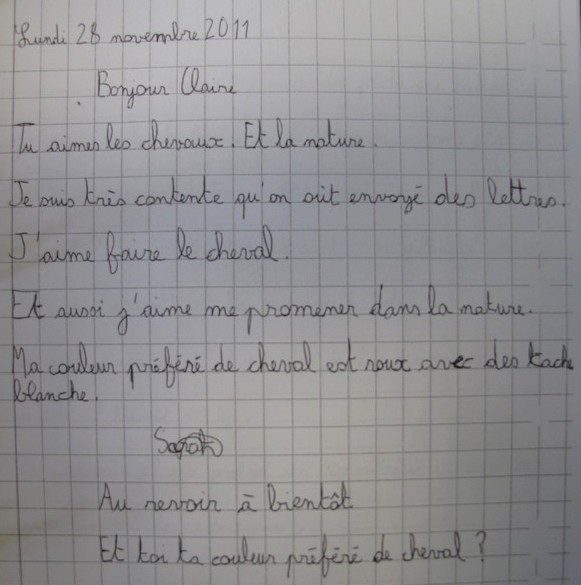 Lundi 28 novembre 2011
Bonjour Claire
Tu aimes les chevaux. Et la nature.
Je suis très contente qu'on ait envoyé des lettres.
J'aime faire le cheval.
Et aussi j'aime me promener dans la nature.
Ma couleur préféré de cheval est roux avec des tach
blanche.
Au revoir à bientôt
Et toi ta couleur préféré de cheval ?